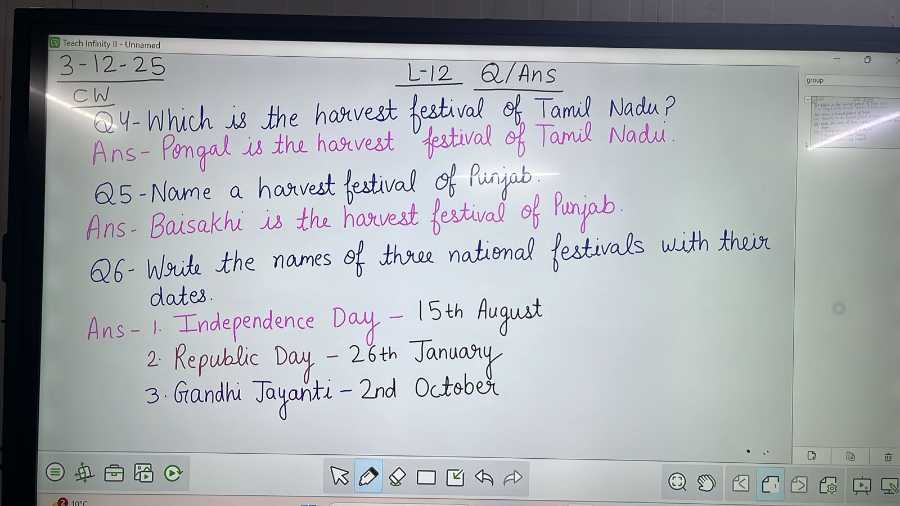 Teach Infinity II - Unnamed
3-12-25
L-12 Q/Ans
CW
Q4- Which is the harvest festival of Tamil Nadu?
Ans- Pongal is the harvest festival of Tamil Nadu.
Q5 - Name a harvest festival of Punjab.
Ans- Baisakhi is the harvest festival of Punjab.
Q6- Write the names of three national festivals with their
dates.
Ans- 1. Independence Day - 15th August
2. Republic Day - 26th January
3. Gandhi Jayanti - 2nd October
group
10°C